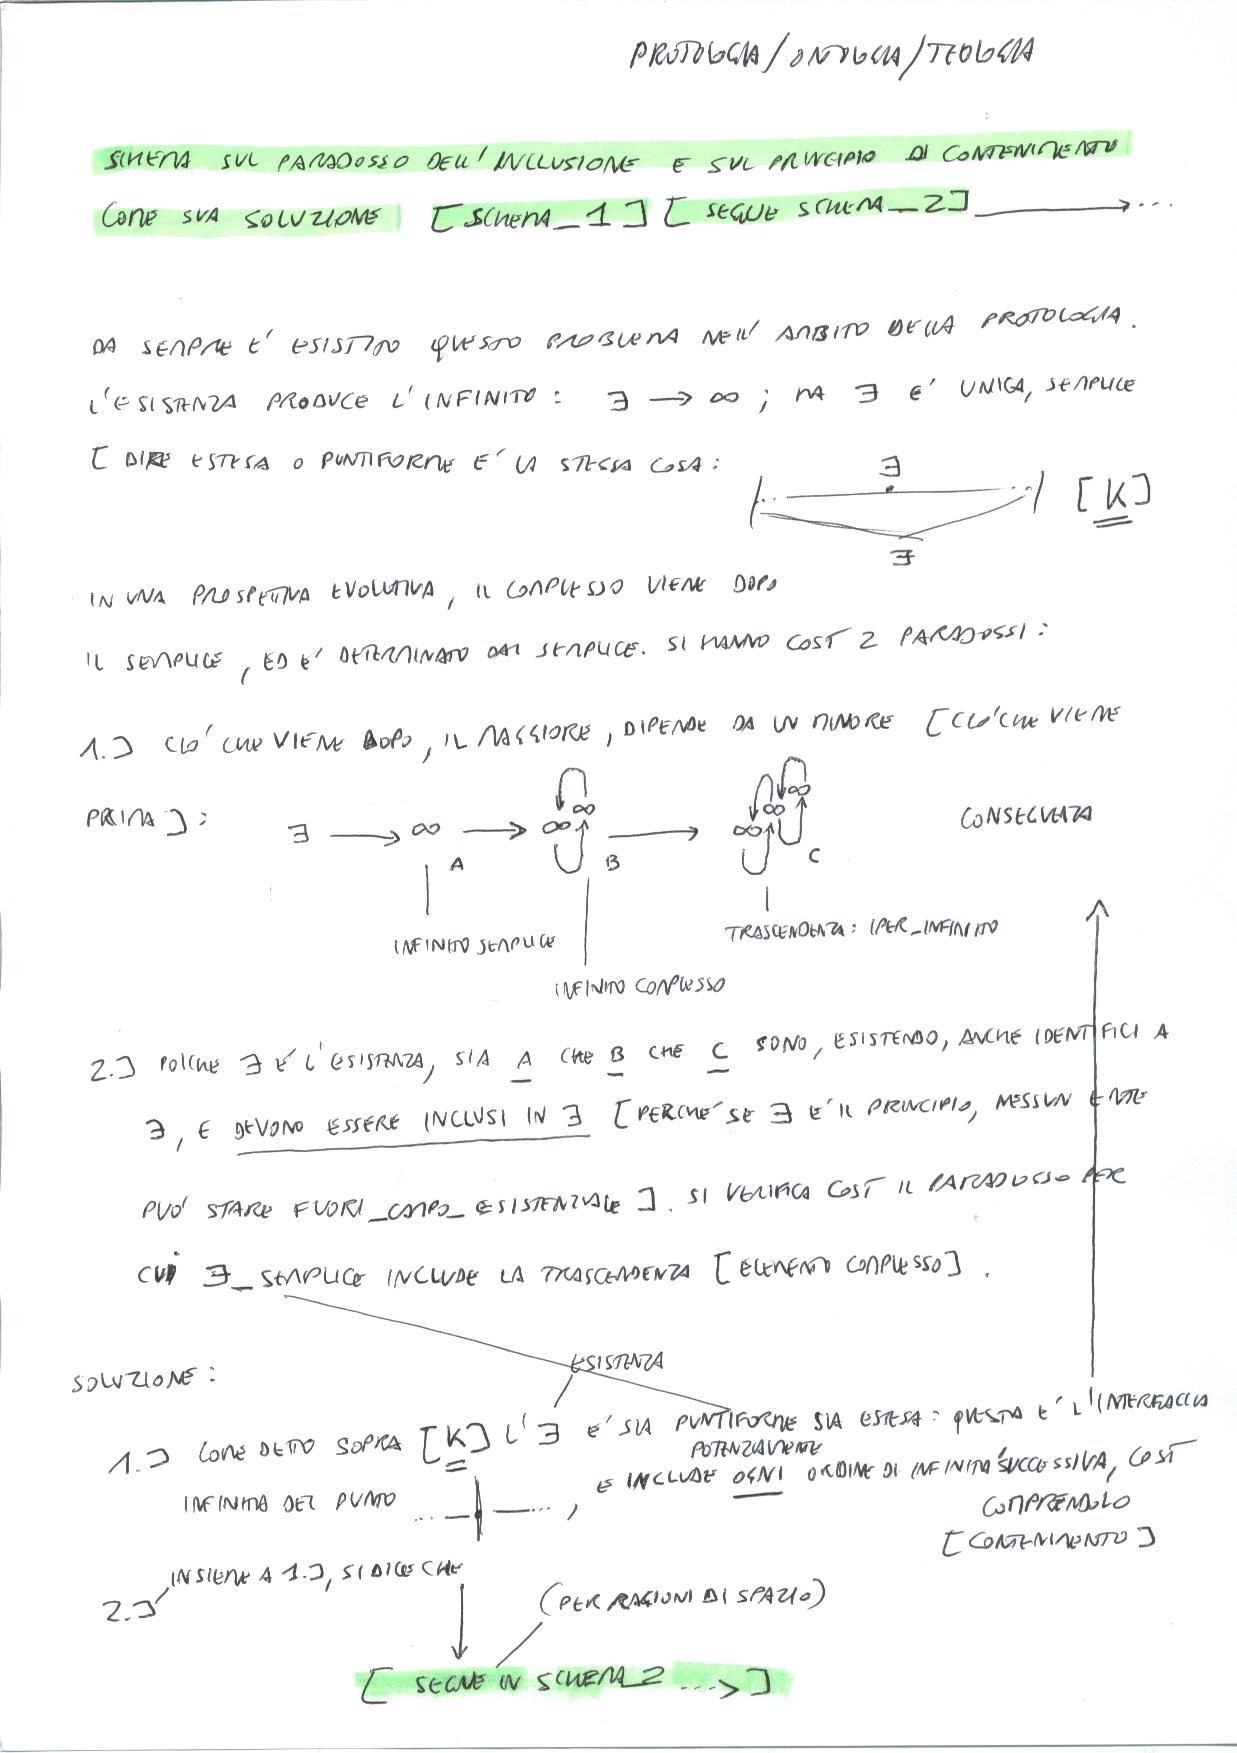 PROTOLOGIA/ONTOLOGIA/TEOLOGIA
SCHEMA SUL PARADOSSO DELL'INCLUSIONE E SUL PRINCIPIO DI CONTENIMENTO
COME SUA SOLUZIONE [SCHEMA_1] [SEGUE SCHEMA_2] → ...
DA SEMPRE E' ESISTITO QUESTO PROBLEMA NELL' AMBITO DELLA PROTOLOGIA.
L'ESISTENZA PRODUCE L'INFINITO: ∃ → ∞ ; MA ∃ E' UNICA, SEMPLICE
[DIRE ESTESA O PUNTIFORME E' LA STESSA COSA:
∃
[K]
∃
IN UNA PROSPETTIVA EVOLUTIVA, IL COMPLESSO VIENE DOPO
IL SEMPLICE, ED E' DETERMINATO DAL SEMPLICE. SI HANNO COSÌ 2 PARADOSSI:
1.] CIO' CHE VIENE DOPO, IL MAGGIORE, DIPENDE DA UN MINORE [CIO' CHE VIENE
PRIMA]: ∃ → ∞ → ∞ ∞ → ∞ ∞ ∞ CONSEGUENZA
A B C
INFINITO SEMPLICE
TRASCENDENZA: IPER_INFINITO
INFINITO COMPLESSO
2.] POICHE ∃ E' L'ESISTENZA, SIA A CHE B CHE C SONO, ESISTENDO, ANCHE IDENTIFICI A
∃, E DEVONO ESSERE INCLUSI IN ∃ [PERCHE' SE ∃ E' IL PRINCIPIO, NESSUN ENTE
PUO' STARE FUORI_CAMPO_ESISTENZIALE]. SI VERIFICA COSÌ IL PARADOSSO PER
CUI ∃_SEMPLICE INCLUDE LA TRASCENDENZA [ELEMENTO COMPLESSO].
SOLUZIONE:
ESISTENZA
1.] COME DETTO SOPRA [K] L'∃ E' SIA PUNTIFORME SIA ESTESA: QUESTA E' L'INTERFACCIA
POTENZIALMENTE
INFINITA DEL PUNTO ... ... , E INCLUDE OGNI ORDINE DI INFINITA' SUCCESSIVA, COSÌ
COMPRENDOLO
[CONTENIMENTO]
INSIEME A 1.], SI DICE CHE
2.]
(PER RAGIONI DI SPAZIO)
[SEGUE IN SCHEMA_2 ...>]